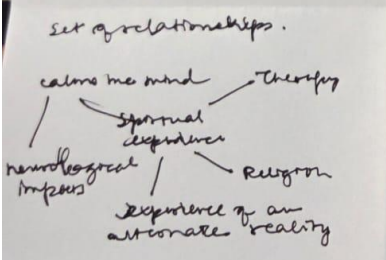 set of relationships.
calms the mind
Therapy
spiritual
experience
neurological
impacts
Religion
experience of an
alternate reality